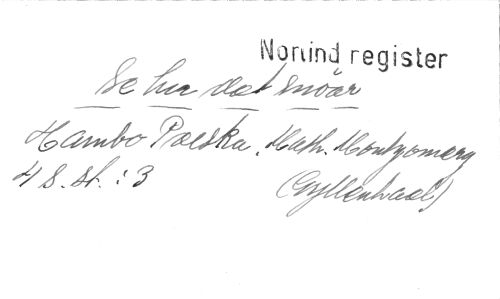 Norlind register
Se hur det snöar
Hambo Polska. Math. Montgomery
4 s. st. : 3 (Gyllenhaal)